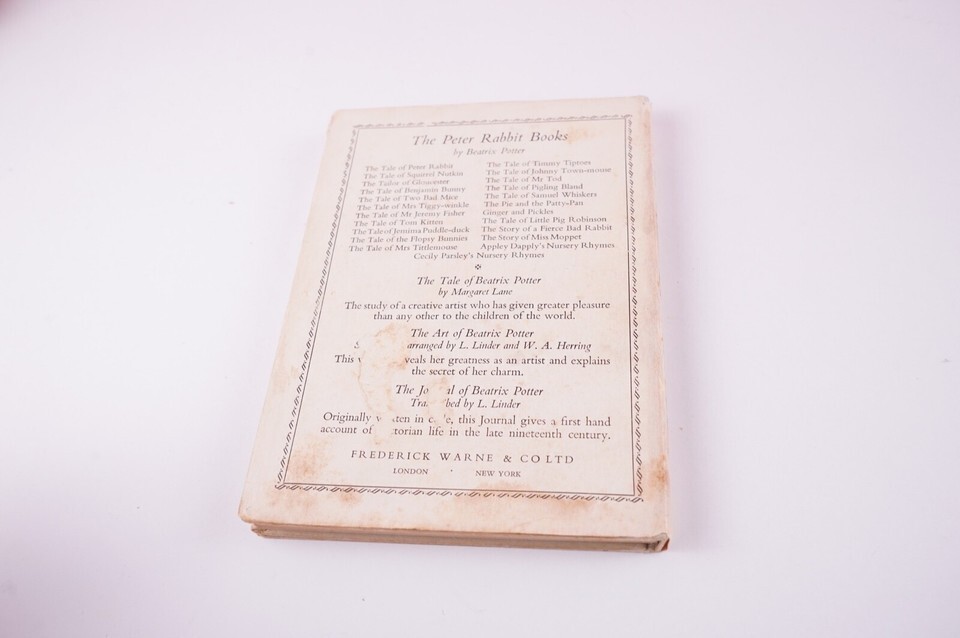 The Peter Rabbit Books
by Beatrix Potter
The Tale of Peter Rabbit
The Tale of Squirrel Nutkin
The Tailor of Gloucester
The Tale of Benjamin Bunny
The Tale of Two Bad Mice
The Tale of Mrs Tiggy-winkle
The Tale of Mr Jeremy Fisher
The Tale of Tom Kitten
The Tale of Jemima Puddle-duck
The Tale of the Flopsy Bunnies
The Tale of Mrs Tittlemouse
The Tale of Timmy Tiptoes
The Tale of Johnny Town-mouse
The Tale of Mr Tod
The Tale of Pigling Bland
The Tale of Samuel Whiskers
The Pie and the Patty-Pan
Ginger and Pickles
The Tale of Little Pig Robinson
The Story of a Fierce Bad Rabbit
The Story of Miss Moppet
Appley Dapply's Nursery Rhymes
Cecily Parsley's Nursery Rhymes
The Tale of Beatrix Potter
by Margaret Lane
The study of a creative artist who has given greater pleasure
than any other to the children of the world.
The Art of Beatrix Potter
arranged by L. Linder and W. A. Herring
This eveals her greatness as an artist and explains
the secret of her charm.
The Jo al of Beatrix Potter
Tra bed by L. Linder
Originally tten in c e, this Journal gives a first hand
account of torian life in the late nineteenth century.
FREDERICK WARNE & CO LTD
LONDON · NEW YORK